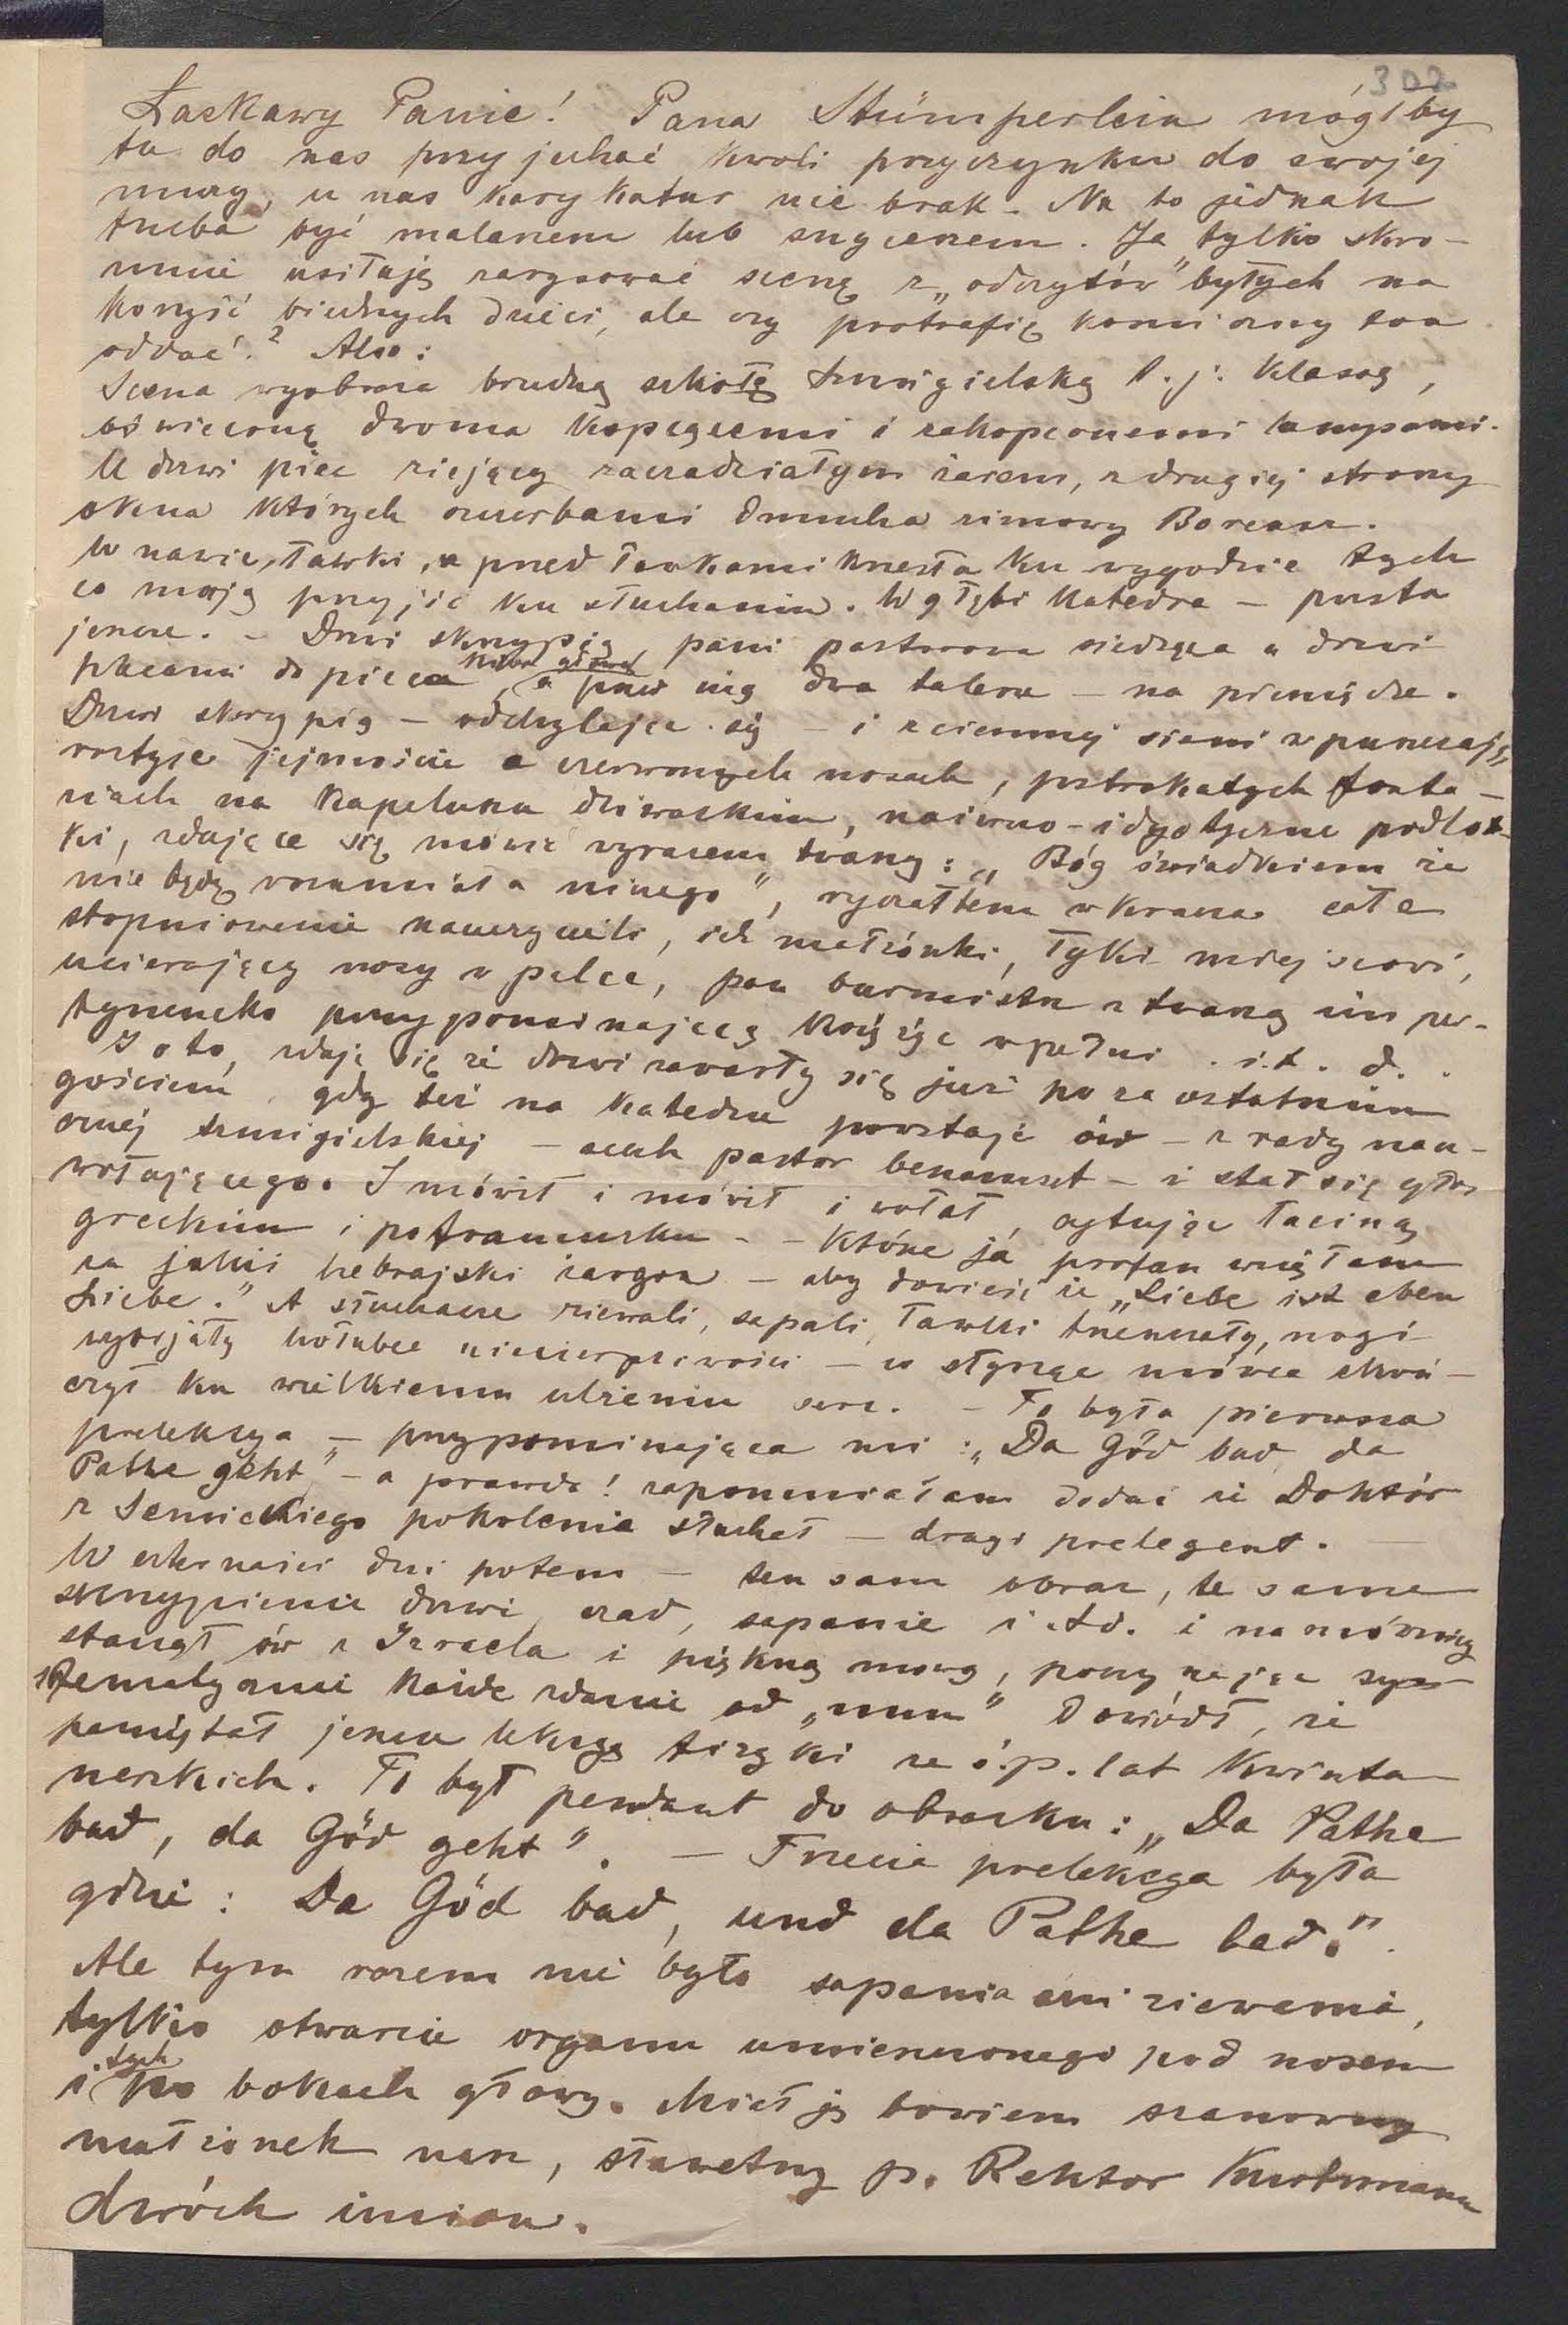 302
Łaskawy Panie! Pana Stümperlein mógłby
tu do nas przyjechać kwoli przyczynku do swojej
muzy, u nas karykatur nie brak. Na to jednak
trzeba być malarzem lub snycerzem. Ja tylko skro-
mnie usiłuję zarysować scenę z „odczytów" byłych na
korzyść biednych dzieci, ale czy potrafię komiczny ton
oddać? Also:
Scena wyobraża brudną szkołę szmigielską t. j. klasę,
oświeconą dwoma kopcącemi i zakopconemi lampami.
U drzwi piec ziejący zaczadziałym żarem, z drugiej strony
okna których szczerbami dmucha zimowy Boreasz.
W nawie, ławki, a przed ławkami krzesła ku wygodzie tych
co mają przyjść ku słuchaniu. W głębi katedra – pusta
jeszcze. – Drzwi skrzypią, pani pastorowa siedząca u drzwi
plecami do pieca, a przed nią dwa talerze – na pieniądze.
Drzwi skrzypią – odchylając się – i z ciemnej sieni wpuszczają,
roztyłe jejmoście o czerwonych nosach, pstrokatych fanta-
ziach na kapeluszu dziwackim, naiwno-idyotyczne podlot-
ki, zdające się mówić wyrazem twarzy: „Bóg świadkiem że
nie będę rozumiała niczego", ryczałtem wkracza całe
stopniowanie nauczycieli, ich małżonki, łyki miejscowi,
ucierający nosy w palce, pan burmistrz z twarzą im per-
tynencko przypominającą księżyc w pełni. i.t.d..
I oto, zdaje się że drzwi zawarły się już poza ostatnim
gościem, gdy też na katedrze powstaje ów – z rady nau-
cznéj szmigielskiej – auch pastor benamset – i stał się głos
wołającego. I mówił i mówił i wołał, cytując łaciną
greckim i po francusku – – które ja profan wzięłam
za jakiś hebrajski żargon – aby dowieść że „Liebe ist eben
Liebe." A słuchacze ziewali, sapali, ławki trzeszczały, nogi
wybijały hołubce niecierpliwości – co słysząc mówca skoń-
czył ku wielkiemu ulżeniu serc. – To była pierwsza
prelekcya – przypominająca mi: „Da Göd bad, da
Pathe geht," – a prawda! zapomniałam dodać że Doktór
z Semickiego pokolenia słuchał – drugi prelegent. –
W czternaści dni potem – ten sam obraz, te same
skrzypienie drzwi, czad, sapanie i.t.d. i na mównicy
stanął ów z Izraela i piękną mową, poczynając sys-
tematycznie każde zdanie od „nun" dowiódł, że
pamiętał jeszcze lekcyę fizyki ze ś.p. lat kwinta-
nerskich. To był pendant do obrazku: „Da Pathe
bad, da Göd geht". – Trzecia prelekcya była
gdzie: Da Göd bad, und da Pathe bad."
Ale tym razem nie było sapania ani ziewania,
tylko otwarcie organu umieszczonego pod nosem
i tych po bokach głowy. Miał ją bowiem szanowny
małżonek nasz, sławetny p. Rektor Kurtzmann
dwóch imion.